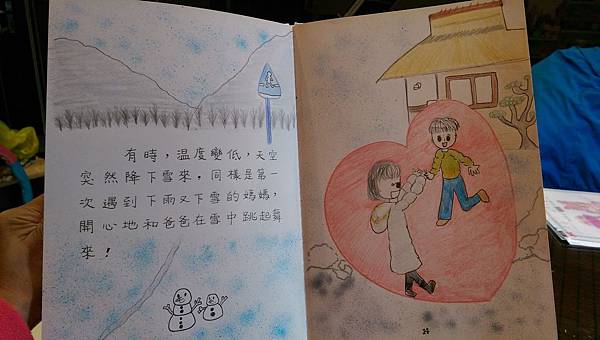 有時，溫度變低，天空
突然降下雪來，同樣是第一
次遇到下雨又下雪的媽媽，
開心地和爸爸在雪中跳起舞
來！